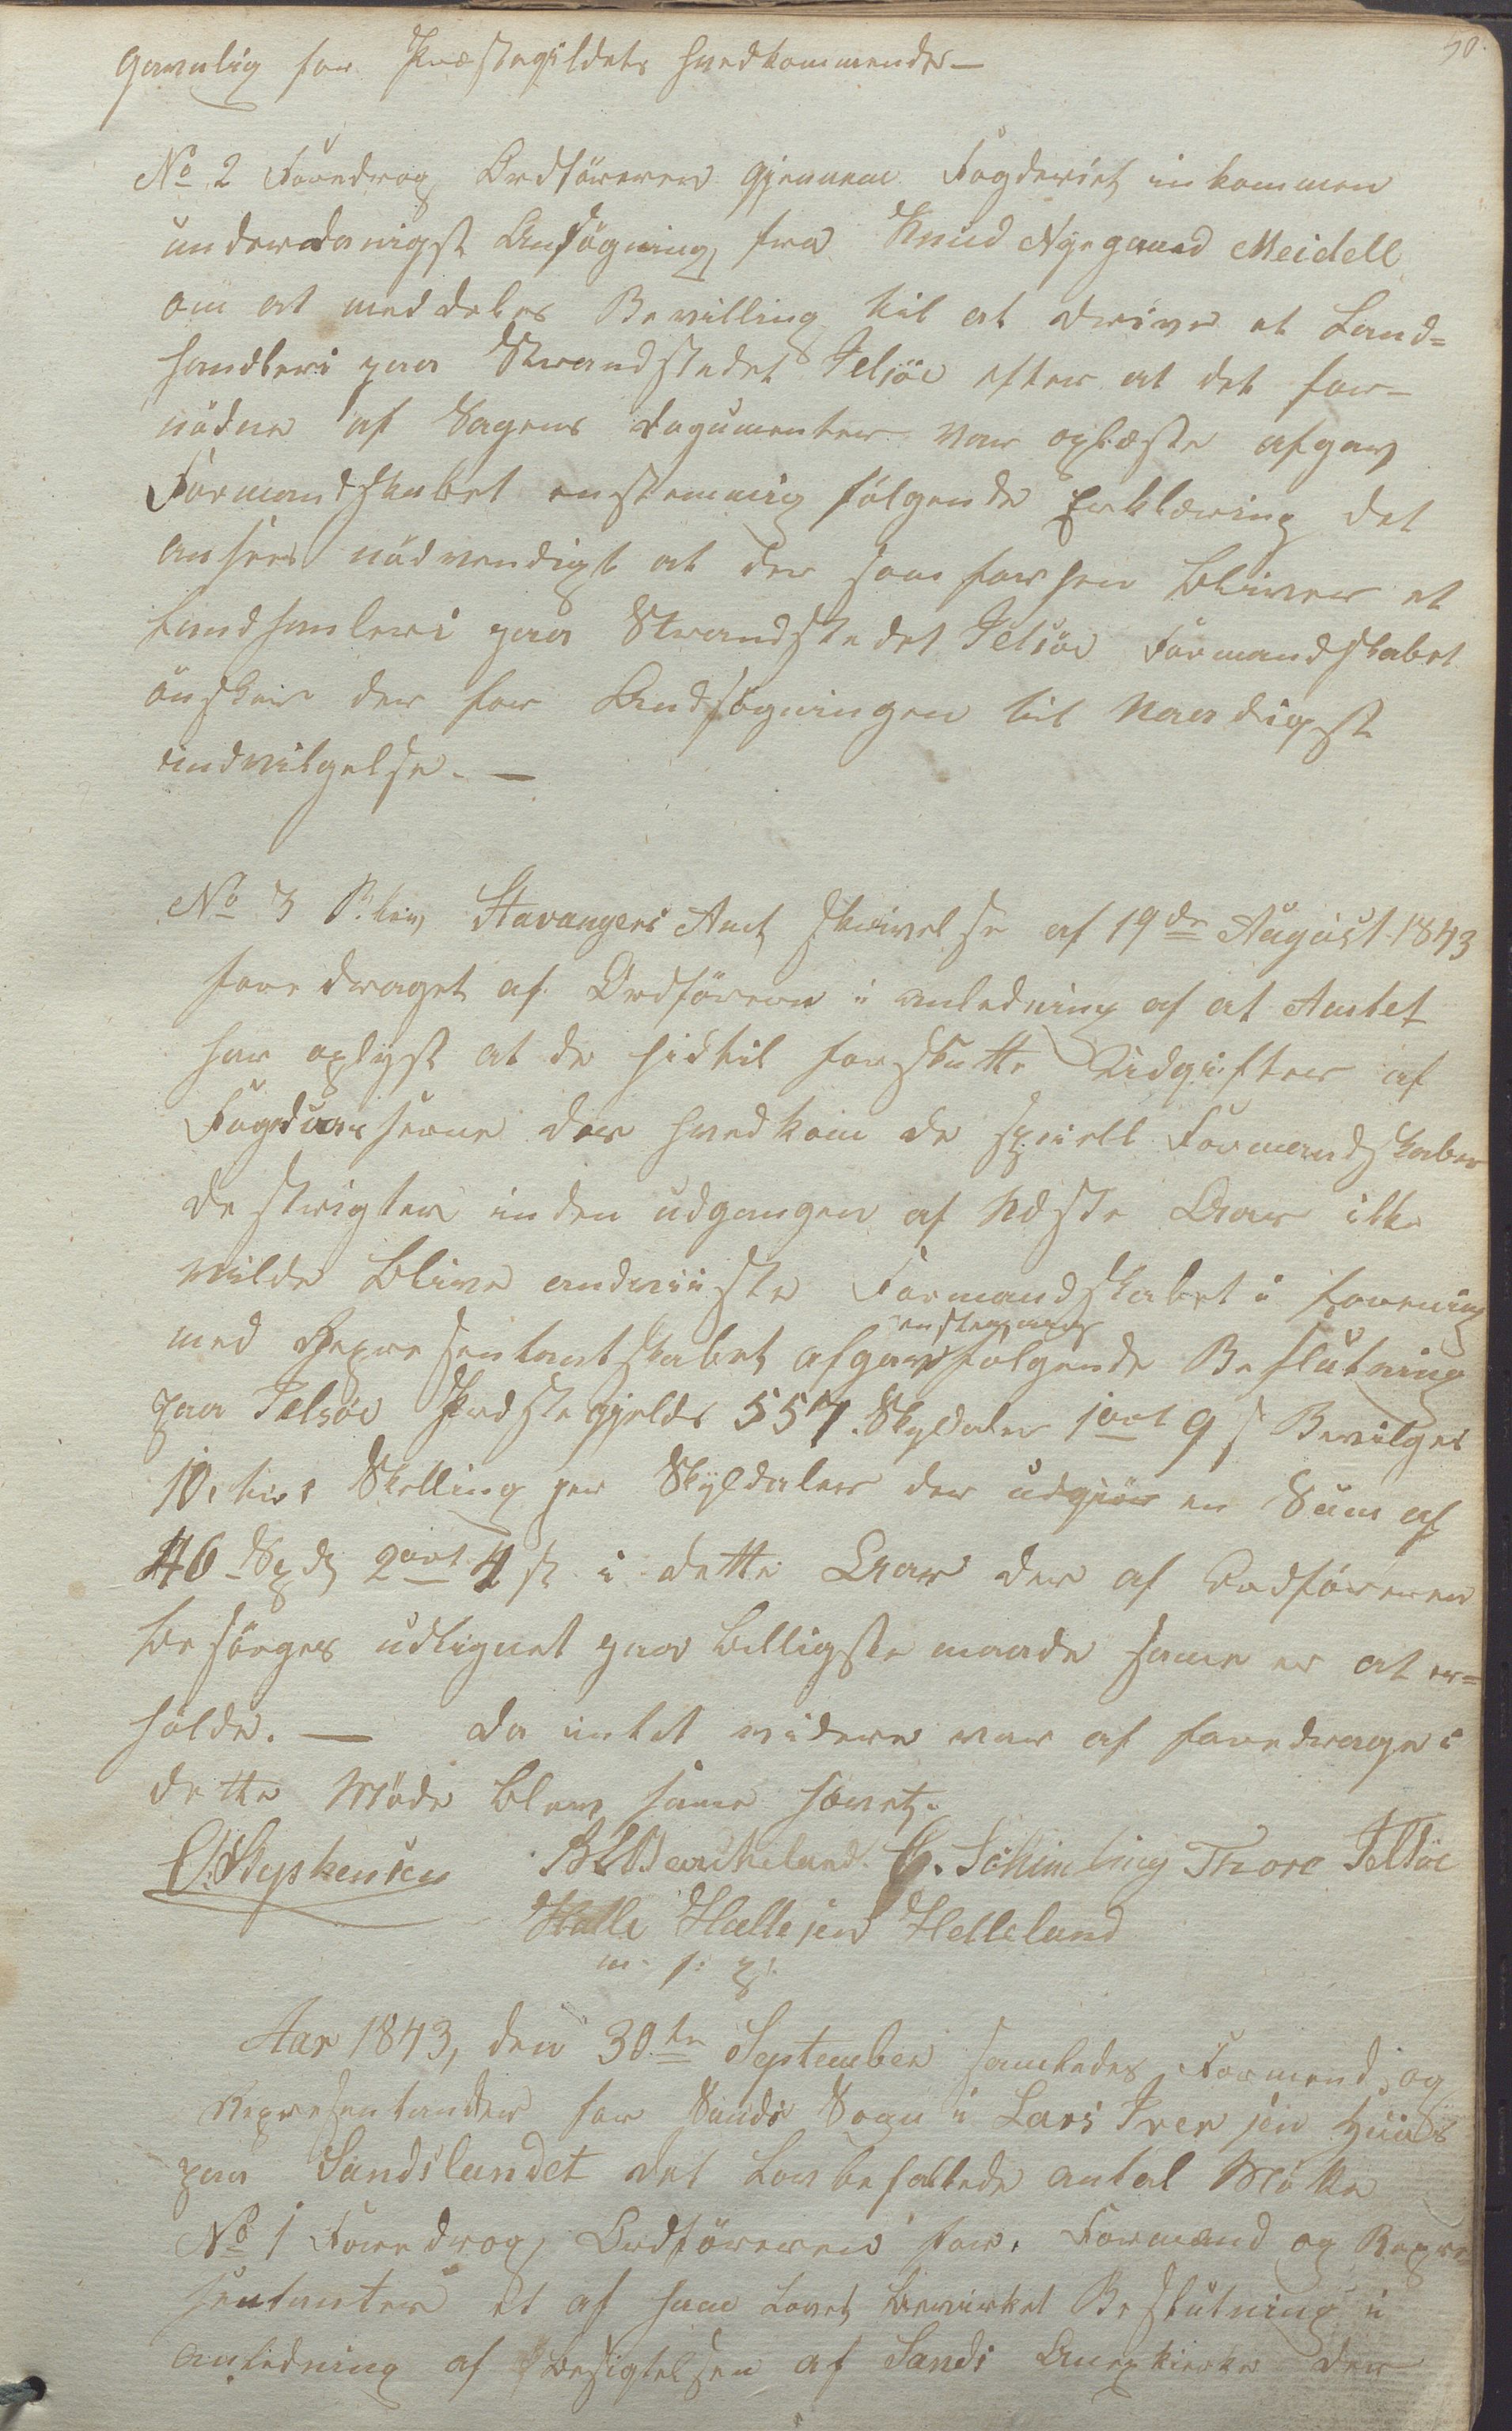 50.
gavnlig for Præstegildets hvedkommende —
No 2 Foredrog Ordföreren gjennem Fogderiet inkommen
underdanigst Ansögning fra Knud Nyegaard Meidell
om at meddeles Bevilling til at drive et Land=
handleri paa Strandstedet Jelsöe efter at det for-
nödne af Sagens Dogumenter var oplæste afgav
Formandskabet enstemmig fölgende Erklæring det
ansees nödvendigt at der som forhen bliver et
Landhanleri paa Strandstedet Jelsöe Formandskabet
önsker der for Andsögningen til Naadigst
indvilgelse. —
No 3 Blev Stavangers Amt skrivelse af 19de August 1843
fore draget af Ordföreren i anledning af at Amtet
har oplyst at de hidtil forskutte Udgifter af
Fogduarserne der hvedkom de speiell Formandskaber
destrigter inden udgangen af Næste Aar ikke
vilde blive andviiste Formandskabet i forening
med Representantskabet afgav enstemmig fölgende Beslutning
paa Jelsöe Præstegjelds 557. Skyldaler 1ort 9 s Bevilges
10, tie, Skelling per Skyldaler der udgiör en Sum af
46 Spd 2ort 4 s i dette Aar der af Ordföreren
besörges udlignet paa billigste maade same er at er=
holde. — Da intet videre var af foredrage i
dette Möde blev same hævet.
O. Stephensen B L Barkeland. C. Schimling Thore Jelsöe
Halle Hallesen Helleland
m. p: P:
Aar 1843, den 30te September samledes Formend og
Representanter for Sands Sogn i Lars Iver sen Huus
paa Sandslandet det Lovbefallede antal Mötte
No 1 Foredrog Ordföreren for. Formænd og Repre
sentanter et af ham Lovet bevirket Beslutning i
anledning af Besigtelsen af Sands Anexkierke der